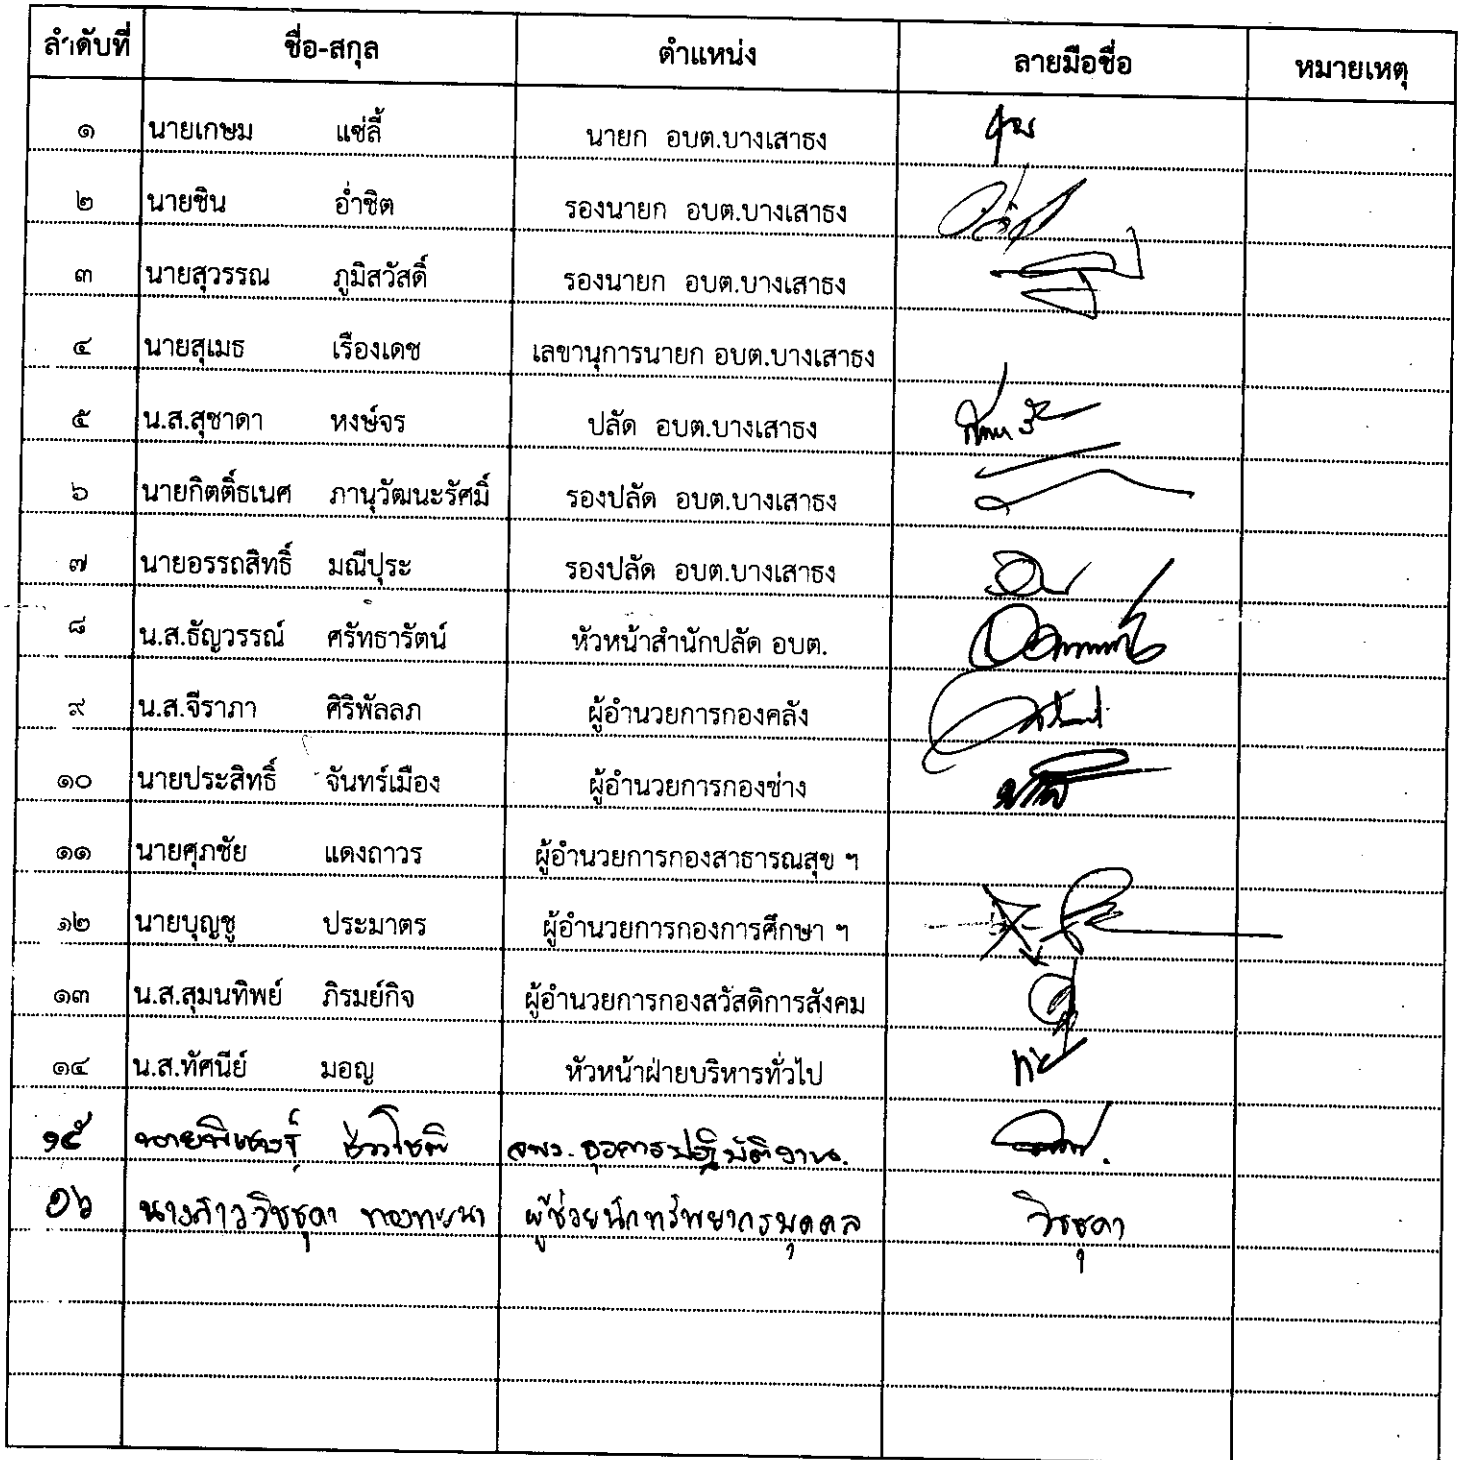 ลำดับที่ ชื่อ-สกุล ตำแหน่ง ลายมือชื่อ หมายเหตุ
๑ นายเกษม แซ่ลี้ นายก อบต.บางเสาธง
๒ นายชิน อ่ำชิต รองนายก อบต.บางเสาธง
๓ นายสุวรรณ ภูมิสวัสดิ์ รองนายก อบต.บางเสาธง
๔ นายสุเมธ เรืองเดช เลขานุการนายก อบต.บางเสาธง
๕ น.ส.สุชาดา หงษ์จร ปลัด อบต.บางเสาธง
๖ นายกิตติ์ธเนศ ภานุวัฒนะรัศมิ์ รองปลัด อบต.บางเสาธง
๗ นายอรรถสิทธิ์ มณีปุระ รองปลัด อบต.บางเสาธง
๘ น.ส.ธัญวรรณ์ ศรัทธารัตน์ หัวหน้าสำนักปลัด อบต.
๙ น.ส.จีราภา ศิริพัลลภ ผู้อำนวยการกองคลัง
๑๐ นายประสิทธิ์ จันทร์เมือง ผู้อำนวยการกองช่าง
๑๑ นายศุภชัย แดงถาวร ผู้อำนวยการกองสาธารณสุข ฯ
๑๒ นายบุญชู ประมาตร ผู้อำนวยการกองการศึกษา ฯ
๑๓ น.ส.สุมนทิพย์ ภิรมย์กิจ ผู้อำนวยการกองสวัสดิการสังคม
๑๔ น.ส.ทัศนีย์ มอญ หัวหน้าฝ่ายบริหารทั่วไป
๑๕ จพง. ธุรการปฏิบัติงาน.
๑๖ นางสาววิชชุดา ผู้ช่วยนักทรัพยากรบุคคล วิชชุดา